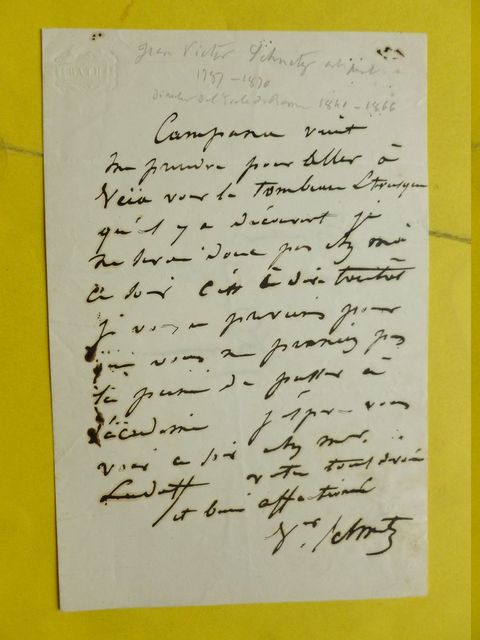 Jean Victor Schnetz
1787-1870
Directeur de l'École de Rome 1840-1866
BATH
Campana vient
me prendre pour aller à
Veia voir le tombeau Etrusque
qu'il y a découvert je
ne serai donc pas chez moi
ce soir c'est à dire tantôt
je vous en préviens pour
que vous ne preniez pas
la peine de passer à
l'académie j'espère vous
voir ce soir chez
votre tout dévoué
et bien affectionné
Vor Schnetz